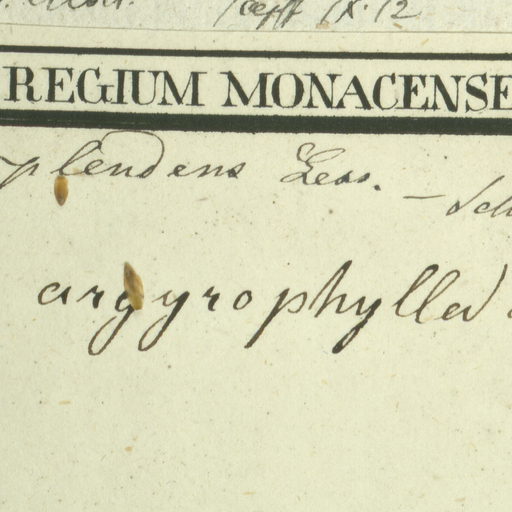 IX. 12
REGIUM MONACENSE
splendens Less. – Sch
argyrophylla